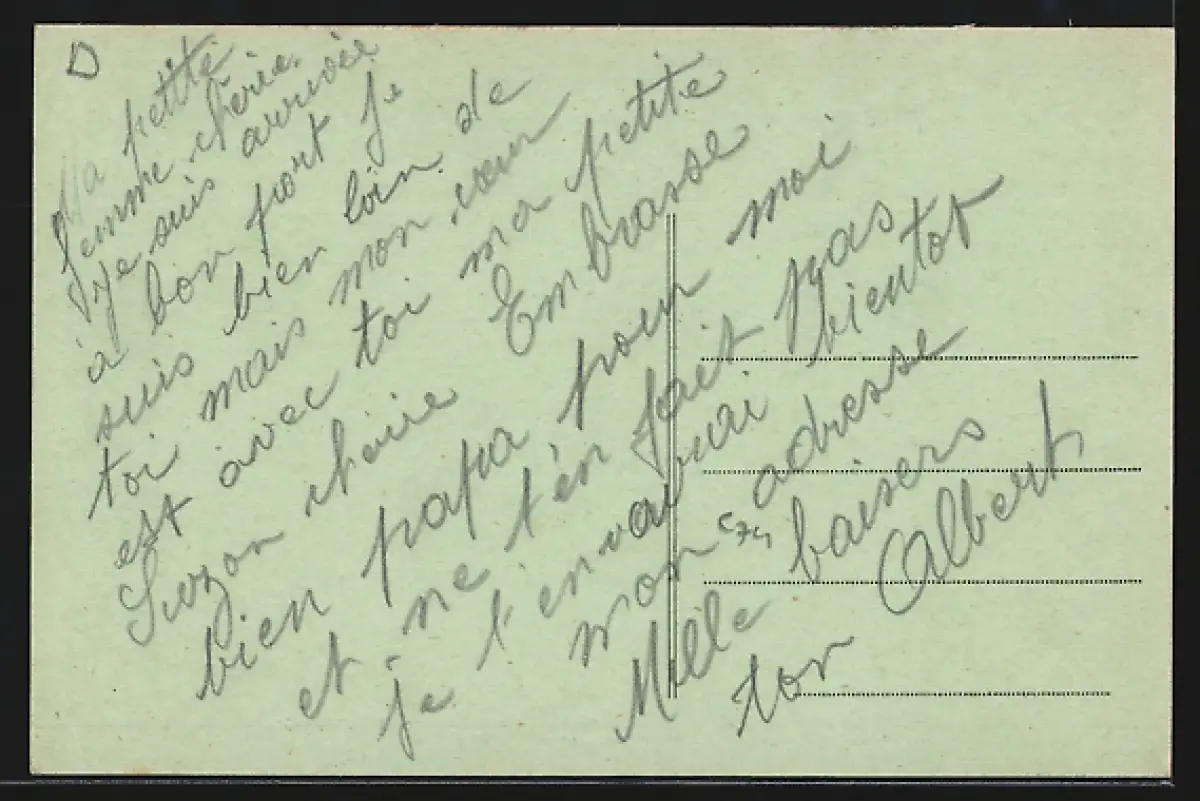 D
Ma petite
femme chérie.
Je suis arrivée
à bon port Je
suis bien loin de
toi mais mon cœur
est avec toi ma petite
Suzon chérie Embrasse
bien papa pour moi
et ne t'en fait pas
je t'envairai bientot
mon adresse
Mille baisers
ton Albert